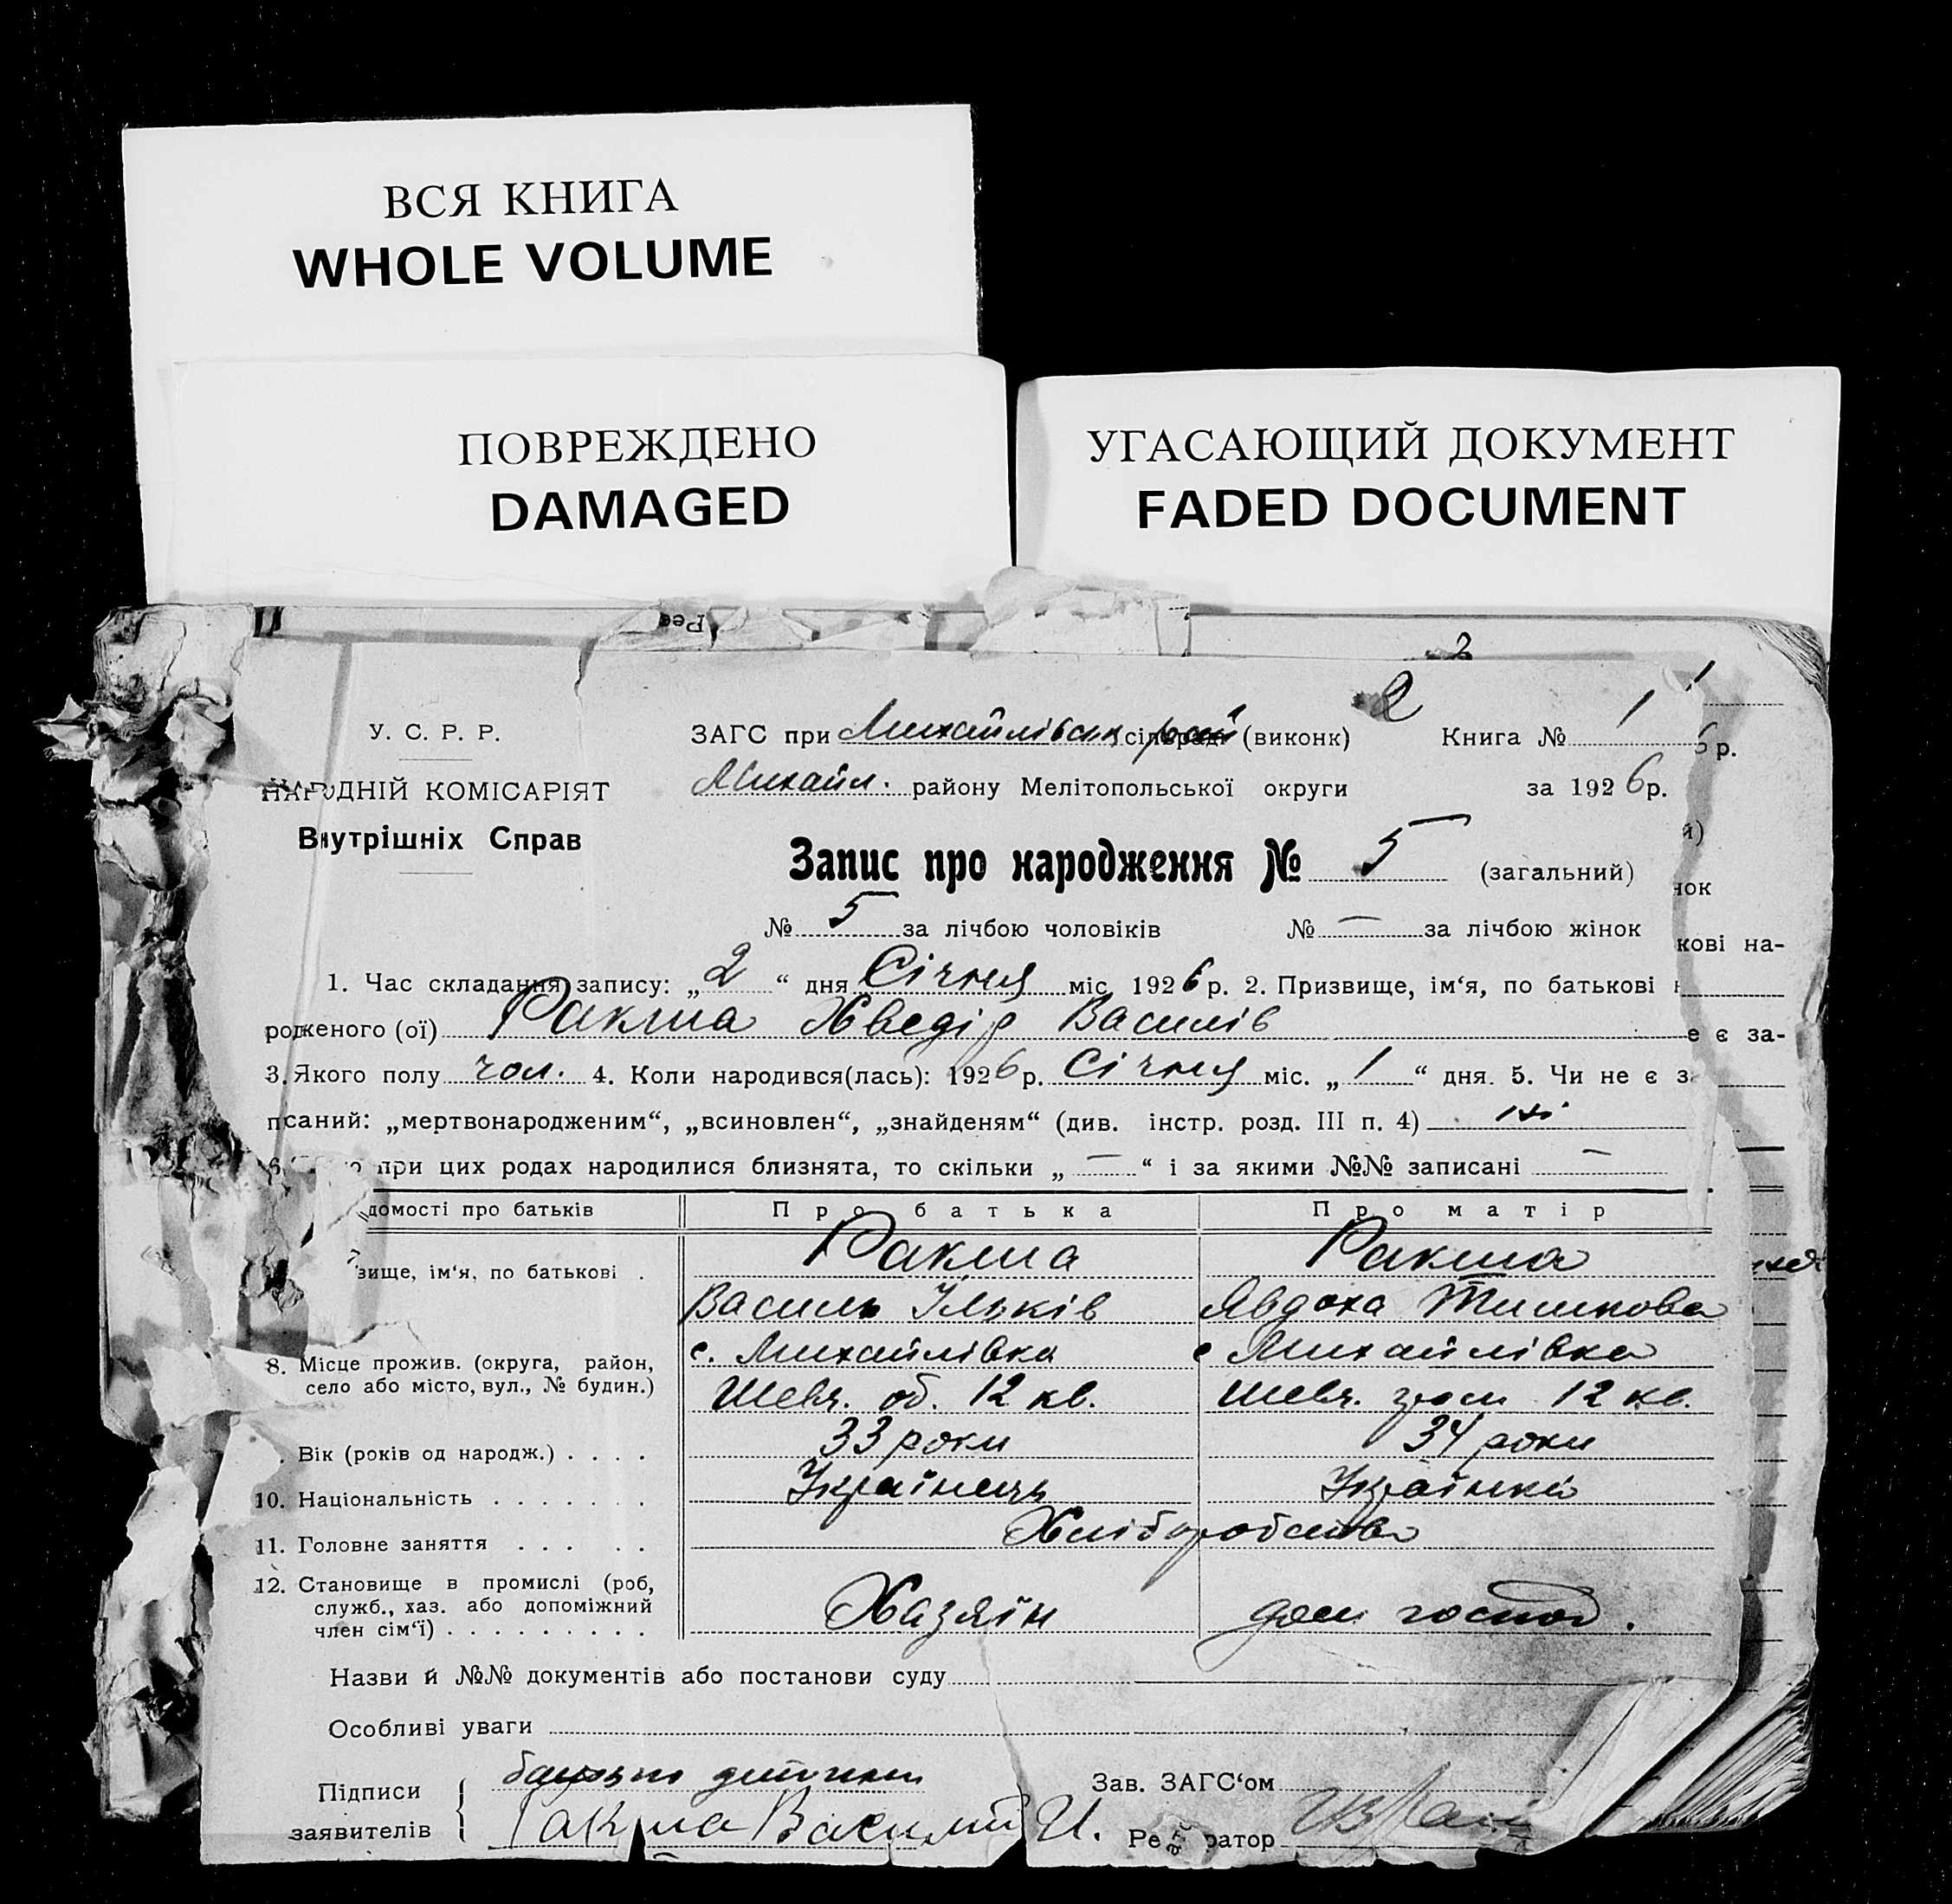 ВСЯ КНИГА
WHOLE VOLUME
ПОВРЕЖДЕНО
DAMAGED
УГАСАЮЩИЙ ДОКУМЕНТ
FADED DOCUMENT
2
2
У. С. Р. Р.
ЗАГС при Михайлівськ (виконк) Книга № 1
НАРОДНІЙ КОМІСАРІЯТ
Михайл. району Мелітопольської округи за 1926 р.
Внутрішніх Справ
Запис про народження № 5 (загальний)
№ 5 за лічбою чоловіків № — за лічбою жінок
1. Час складання запису: „2“ дня Січня міс. 1926 р. 2. Призвище, ім‘я, по батькові
родженого (ої) Ракша Хведір Василів
3. Якого полу чол. 4. Коли народився(лась): 1926 р. Січня міс. „1“ дня. 5. Чи не є за
писаний: „мертвонародженим“, „всиновлен“, „знайденям“ (див. інстр. розд. III п. 4) ні
при цих родах народилися близнята, то скільки „—“ і за якими №№ записані —
домості про батьків Про батька Про матір
вище, ім‘я, по батькові . Ракша Ракша
Василь Ільків Явдоха Тишкова
8. Місце прожив. (округа, район, с. Михайлівка с Михайлівка
село або місто, вул., № будин.) Шевч. об. 12 кв. Шевч. 12 кв.
Вік (років од народж.) . . . . 33 роки 34 роки
10. Національність . . . . . . . Українець Українка
11. Головне заняття . . . . . Хліборобство
12. Становище в промислі (роб, служб., хаз. або допоміжний член сім‘ї) . . . . . . . . . Хазяїн дом господ.
Назви й №№ документів або постанови суду
Особливі уваги
Підписи батько дитини Зав. ЗАГС‘ом
заявителів Ракша Василий И. Ре ратор